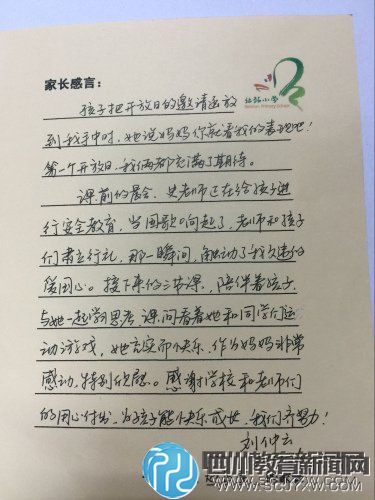 家长感言：
北站小学
Beizhan Primary School
孩子把开放日的邀请函放
到我手中时，她说妈妈你就看我的表现吧！
第一个开放日，我俩都充满了期待。
课前的晨会，吴老师正在给孩子进
行安全教育，当国歌响起了，老师和孩子
们肃立行礼，那一瞬间，触动了我久违的
爱国心。接下来的三节课，陪伴着孩子
与她一起学习思考，课间看着她和同学们运
动游戏，她充实而快乐，作为妈妈非常
感动，特别欣慰。感谢学校和老师们
的用心付出，为孩子能快乐成长，我们齐努力！
刘仲云
四川教育新闻网
WWW.SCJYXW.COM